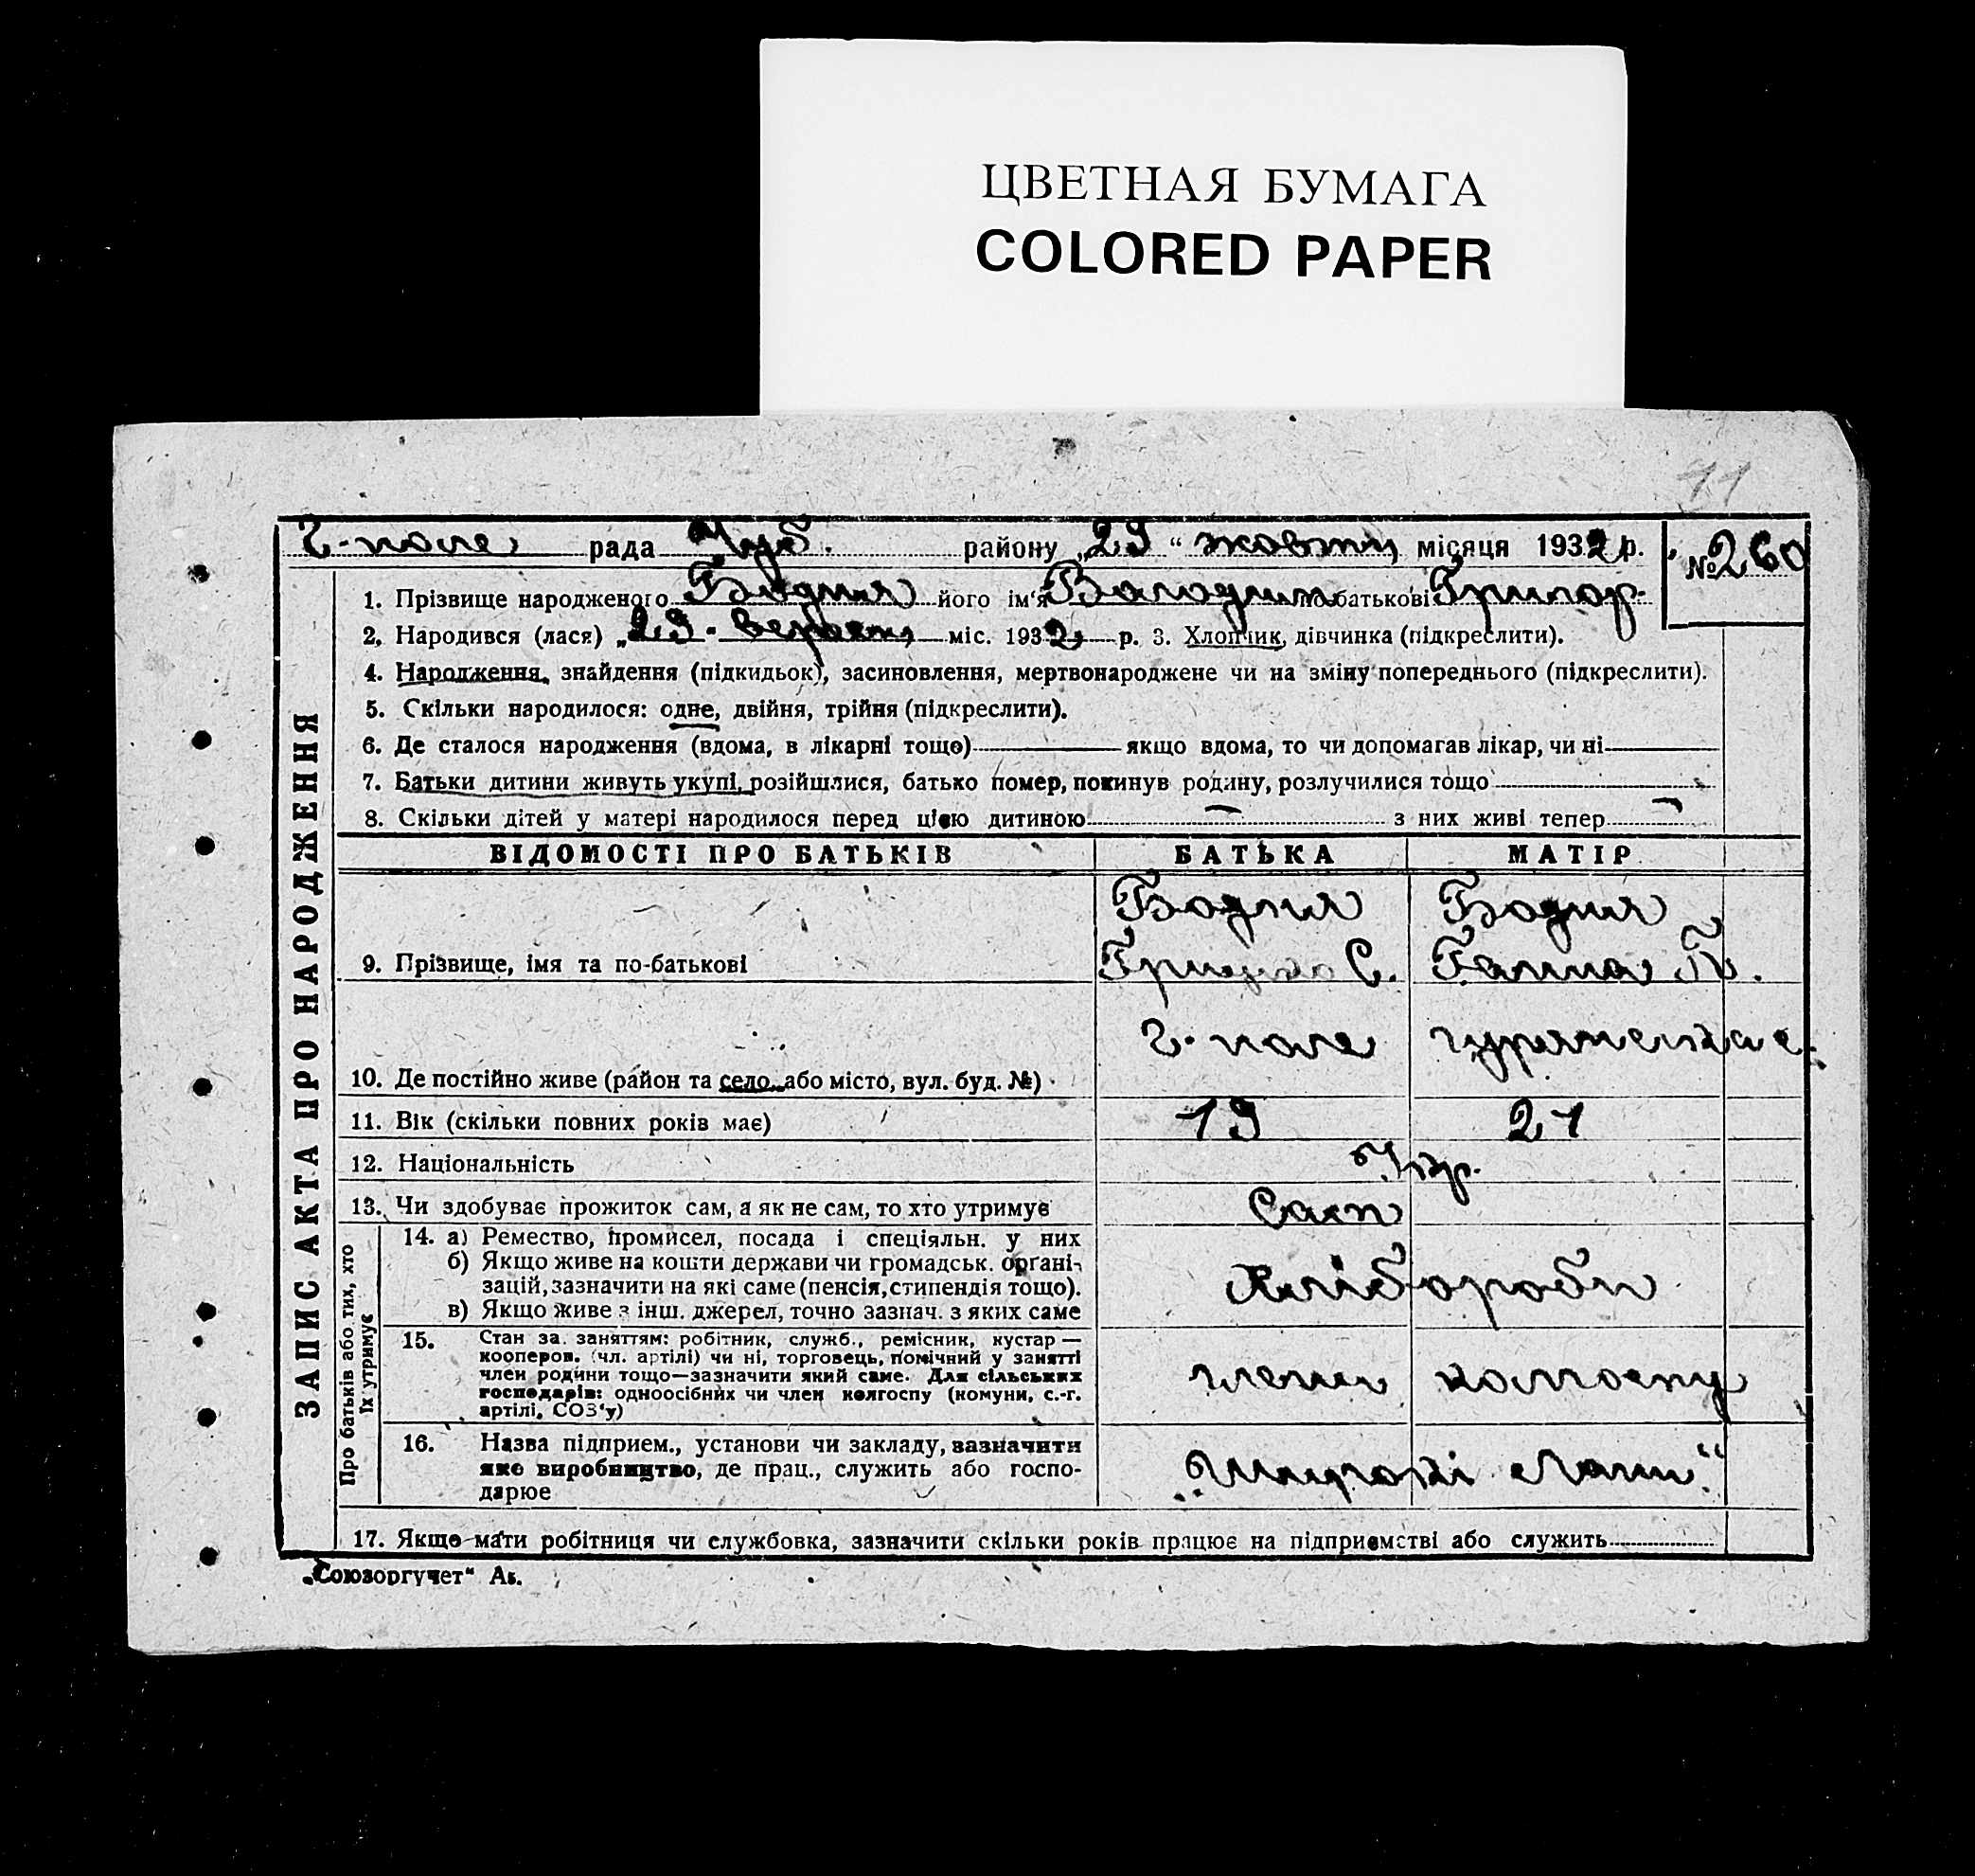 ЦВЕТНАЯ БУМАГА
COLORED PAPER
11
Г-поле рада Чуб. району „29“ жовтня місяця 1932 р. № 260
1. Прізвище народженого Бодня його ім'я Володим по батькові Григор.
2, Народився (лася) „29" вересня міс. 1932 р. 3. Хлопчик, дівчинка (підкреслити).
4. Народження, знайдення (підкидьок), засиновлення, мертвонароджене чи на зміну попереднього (підкреслити).
5. Скільки народилося: одне, двійня, трійня (підкреслити).
6. Де сталося народження (вдома, в лікарні тощо) — якщо вдома, то чи допомагав лікар, чи ні —
7. Батьки дитини живуть укупі, розійшлися, батько помер, покинув родину, розлучилися тощо
8. Скільки дітей у матері народилося перед цією дитиною — з них живі тепер —
ЗАПИС АКТА ПРО НАРОДЖЕННЯ
ВІДОМОСТІ ПРО БАТЬКІВ БАТЬКА МАТІР
Бодня Бодня
9. Прізвище, імя та по-батькові Грицько С. Ганна
Г-поле
10. Де постійно живе (район та село або місто, вул. буд. №)
11. Вік (скільки повних років має) 19 21
12. Національність Укр.
13. Чи здобуває прожиток сам, а як не сам, то хто утримує Сами
Про батьків або тих, хто їх утримує
14. а) Ремество, промисел, посада і спеціяльн. у них
б) Якщо живе на кошти держави чи громадськ. органі-
зацій, зазначити на які саме (пенсія, стипендія тощо). Хлібороби
в) Якщо живе з інш. джерел, точно зазнач. з яких саме
15. Стан за заняттям: робітник, служб., ремісник, кустар —
кооперов. (чл. артілі) чи ні, торговець, помічний у занятті
член родини тощо—зазначити який саме. Для сільських члени колгоспу
господарів: одноосібних чи член колгоспу (комуни, с.-г.
артілі, СОЗ'у)
16. Назва підприєм., установи чи закладу, зазначити
яке виробництво, де прац., служить або госпо- „Широкі Лани“
дарює
17. Якщо мати робітниця чи службовка, зазначити скільки років працює на підприємстві або служить
„Союзоргучет“ Аз.